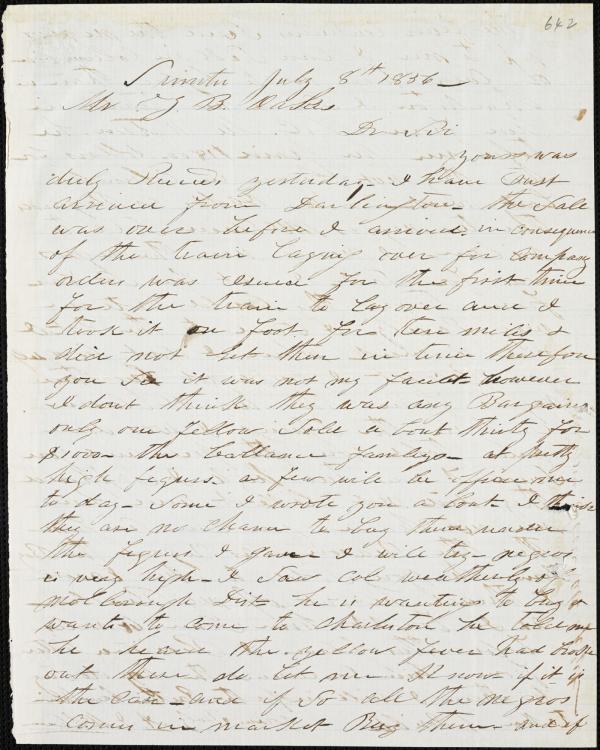 642
Sumter July 8th 1856 -
Mr Z. B. Oakes
Dr Sir
yours was
duly Recved yesterday - I have Just
arrived from Darlington - the Sale
was over before I arrived in consequence
of the train laying over for company
orders was isued for the first time
for the train to lay over and I
took it on foot for ten miles &
did not get ther in time therefore
you se it was not my fault however
I dont think they was any Bargains
only one fellow sold about thirty for
$1000 - the ballance familys - at pretty
high figures a few will be offered me
to day - Some I wrote you a bout - I think
they are no chance to buy them under
the figures I gave I will try - negros
is very high - I saw col weatherly of
Molborough Dist he is wanting to buy &
wants to come to charleston he told me
he heard the yellow fever had broke
out there do let me know if it is
the case - and if so all the negros
comes in market Buy them - and if